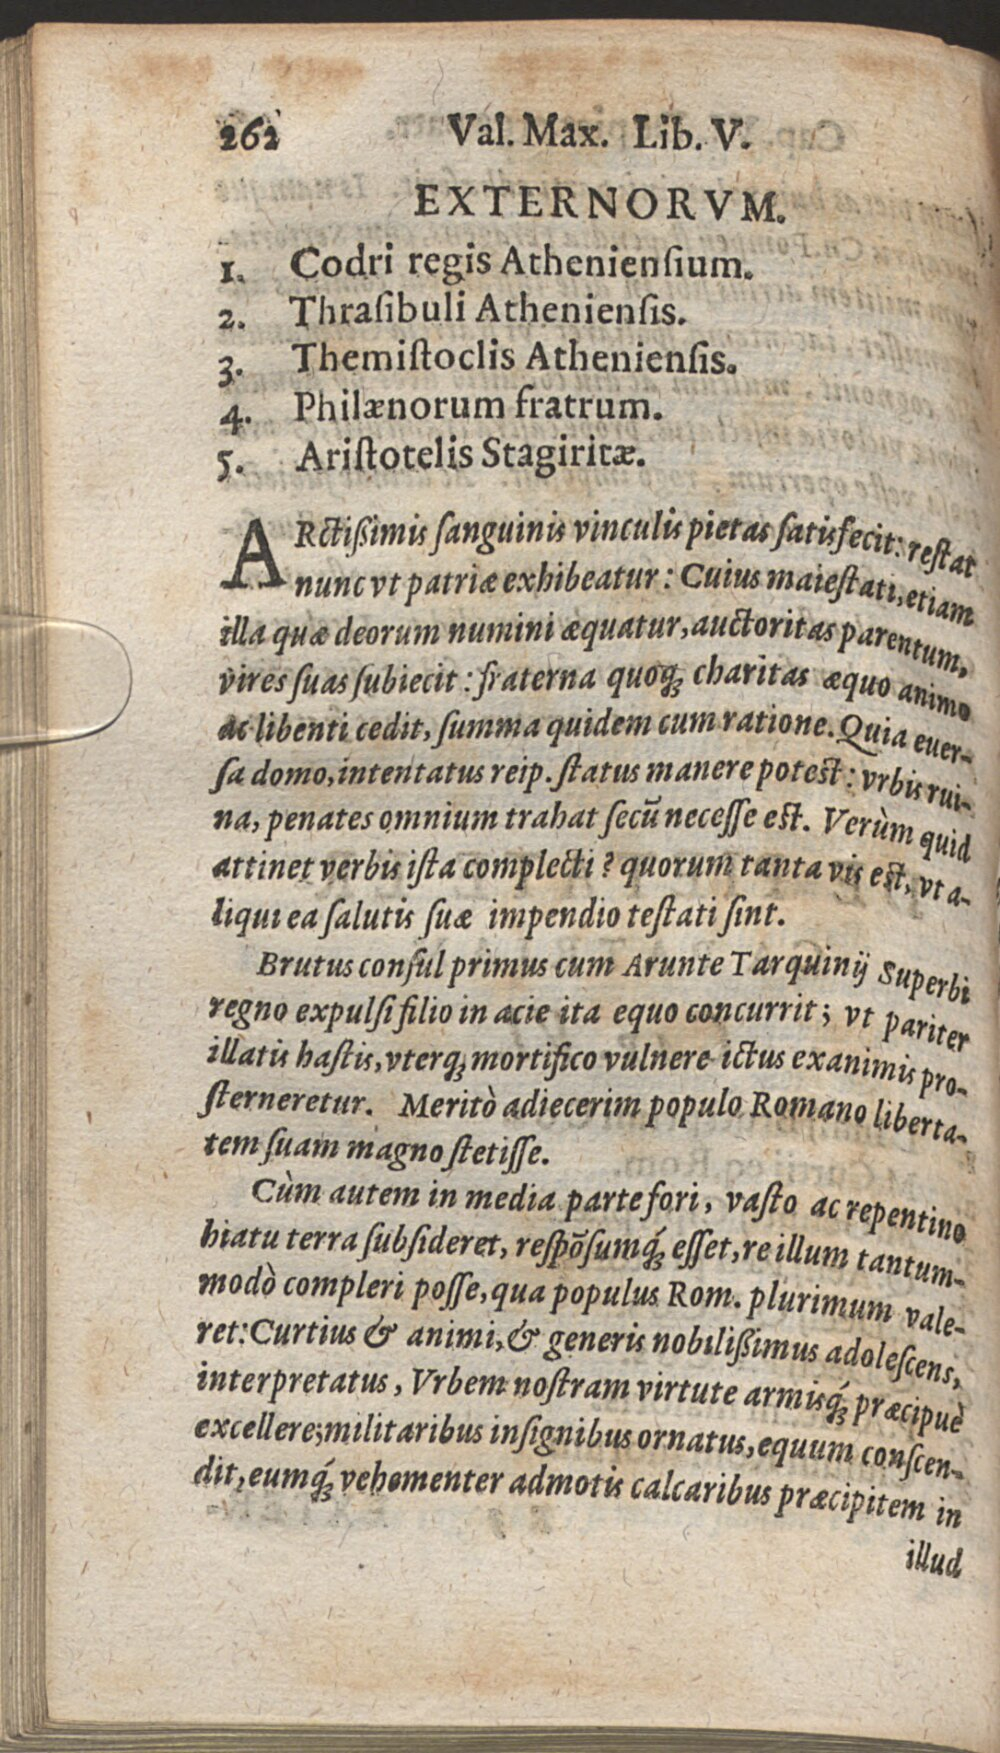 262 Val. Max. Lib. V.
EXTERNORVM.
1. Codri regis Athenienſium.
2. Thraſibuli Athenienſis.
3. Themiſtoclis Athenienſis.
4. Philænorum fratrum.
5. Ariſtotelis Stagiritæ.
ARctißimis ſanguinis vinculis pietas ſatisfecit: reſtat
nunc vt patriæ exhibeatur: Cuius maieſtati, etiam
illa quæ deorum numini æquatur, auctoritas parentum,
vires ſuas ſubiecit: fraterna quoq́; charitas æquo animo
ac libenti cedit, ſumma quidem cum ratione. Quia euer-
ſa domo, intentatus reip. ſtatus manere poteſt: vrbis rui-
na, penates omnium trahat ſecū neceſſe eſt. Verùm quid
attinet verbis iſta complecti? quorum tanta vis eſt, vt a-
liqui ea ſalutis ſuæ impendio teſtati ſint.
Brutus conſul primus cum Arunte Tarquinij Superbi
regno expulſi filio in acie ita equo concurrit; vt pariter
illatis haſtis, vterq; mortifico vulnere ictus exanimis pro-
ſterneretur. Meritò adiecerim populo Romano liberta-
tem ſuam magno ſtetiſſe.
Cùm autem in media parte fori, vaſto ac repentino
hiatu terra ſubſideret, reſpōſumq́; eſſet, re illum tantum-
modò compleri poſſe, qua populus Rom. plurimum vale-
ret: Curtius & animi, & generis nobilißimus adoleſcens,
interpretatus, Vrbem noſtram virtute armisq́; præcipuè
excellere; militaribus inſignibus ornatus, equum conſcen-
dit, eumq́; vehementer admotis calcaribus præcipitem in
illud